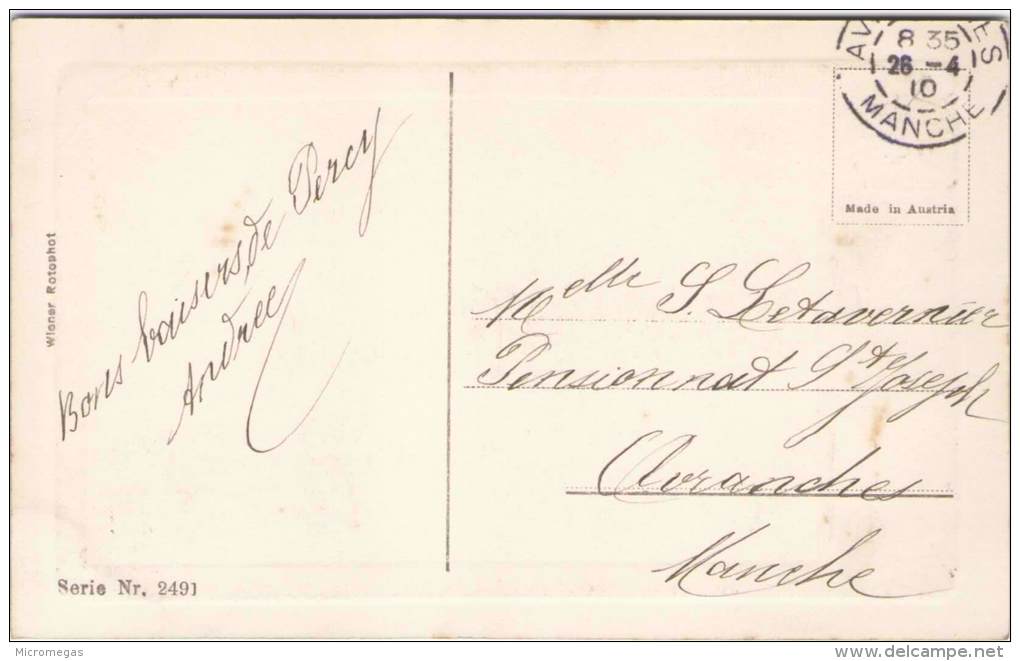 AV ES
8 35
26 - 4
10
MANCHE
Made in Austria
Wiener Rotophot
Bons baisers de Percy
Andrée
Melle S. Letavernier
Pensionnat St Joseph
Avranches
Manche
Serie Nr. 2491
Micromegas
www.delcampe.net